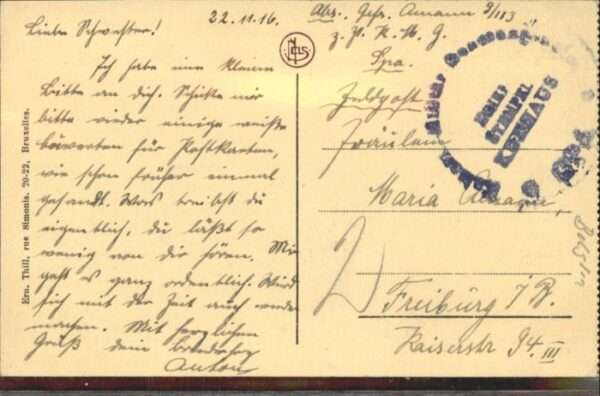 22.11.16.
Liebe Schwester!
Ich habe eine kleine
Bitte an dich. Schicke mir
bitte wieder einige weiße
für Postkarten,
wie schon früher einmal
gesandt. Was treibst du
eigentlich, du läßt so
wenig von dir hören. Mir
geht es ganz ordentlich. Wird
sich mit der Zeit auch wieder
machen. Mit herzlichem
Gruß dein
Anton
Ern. Thill, rue Simonis, 20-22, Bruxelles.
NELS
Abs. Gefr. Amann 9/113
z. Zt. K. M. G.
Spa.
Feldpost
Fräulein
Maria Amann
Freiburg i/B.
Kaiserstr 94 III
BRIEF
STEMPEL
KURHAUS